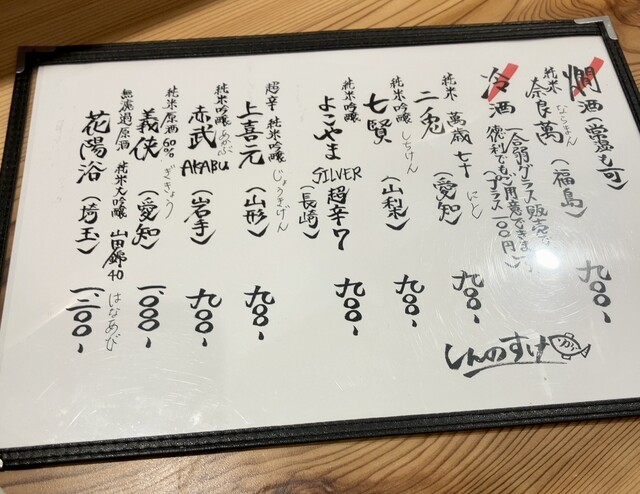 燗酒（常温も可）
純米
奈良萬（福島）九〇〇-
ならまん
冷酒
（一合弱グラス販売で
徳利でもご用意できます
（プラス一〇〇円）
純米 萬歳七十
二兎（愛知）九〇〇-
にと
純米吟醸
七賢（山梨）九〇〇-
しちけん
純米吟醸
よこやま SILVER 超辛7（長崎）九〇〇-
超辛 純米吟醸
上喜元（山形）九〇〇-
じょうきげん
純米吟醸
赤武 AKABU（岩手）九〇〇-
あかぶ
純米原酒60%
義侠（愛知）一、〇〇〇-
ぎきょう
無濾過原酒 純米大吟醸 山田錦40
花陽浴（埼玉）一、二〇〇-
はなあび
しんのすけ